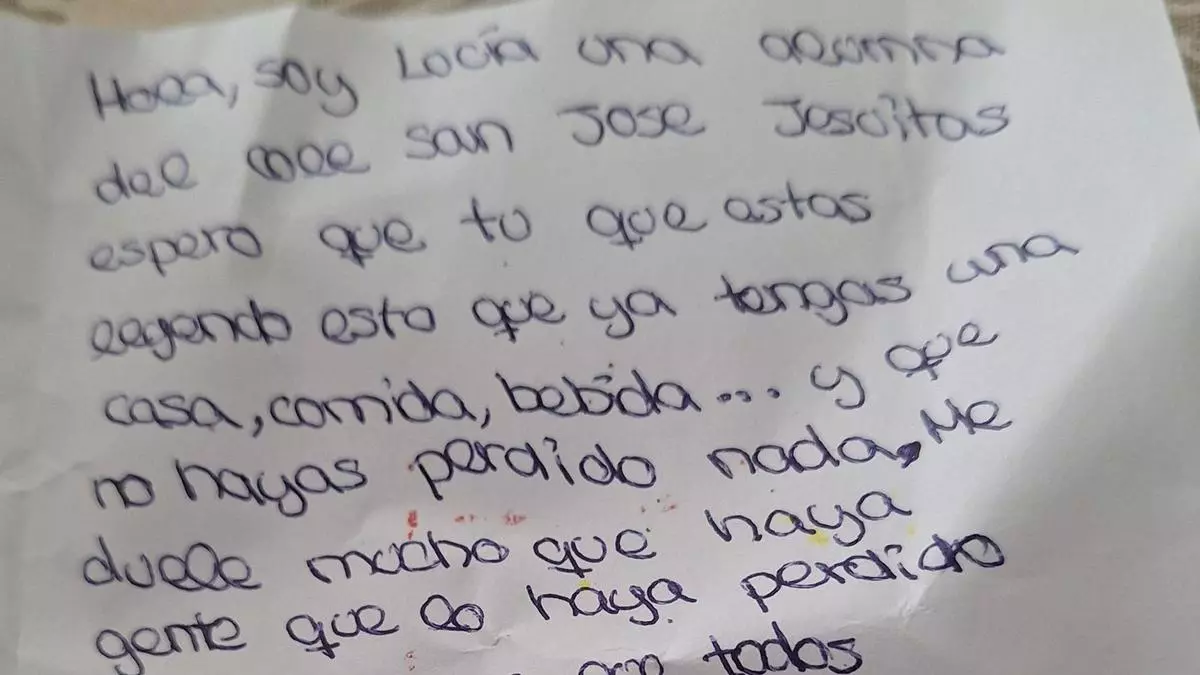 Hola, soy Lucía una alumna
del cole san Jose Jesuitas
espero que tu que astas
leyendo esto que ya tengas una
casa, comida, bebida... y que
no hayas perdido nada, Me
duele mucho que haya
gente que lo haya perdido
todos